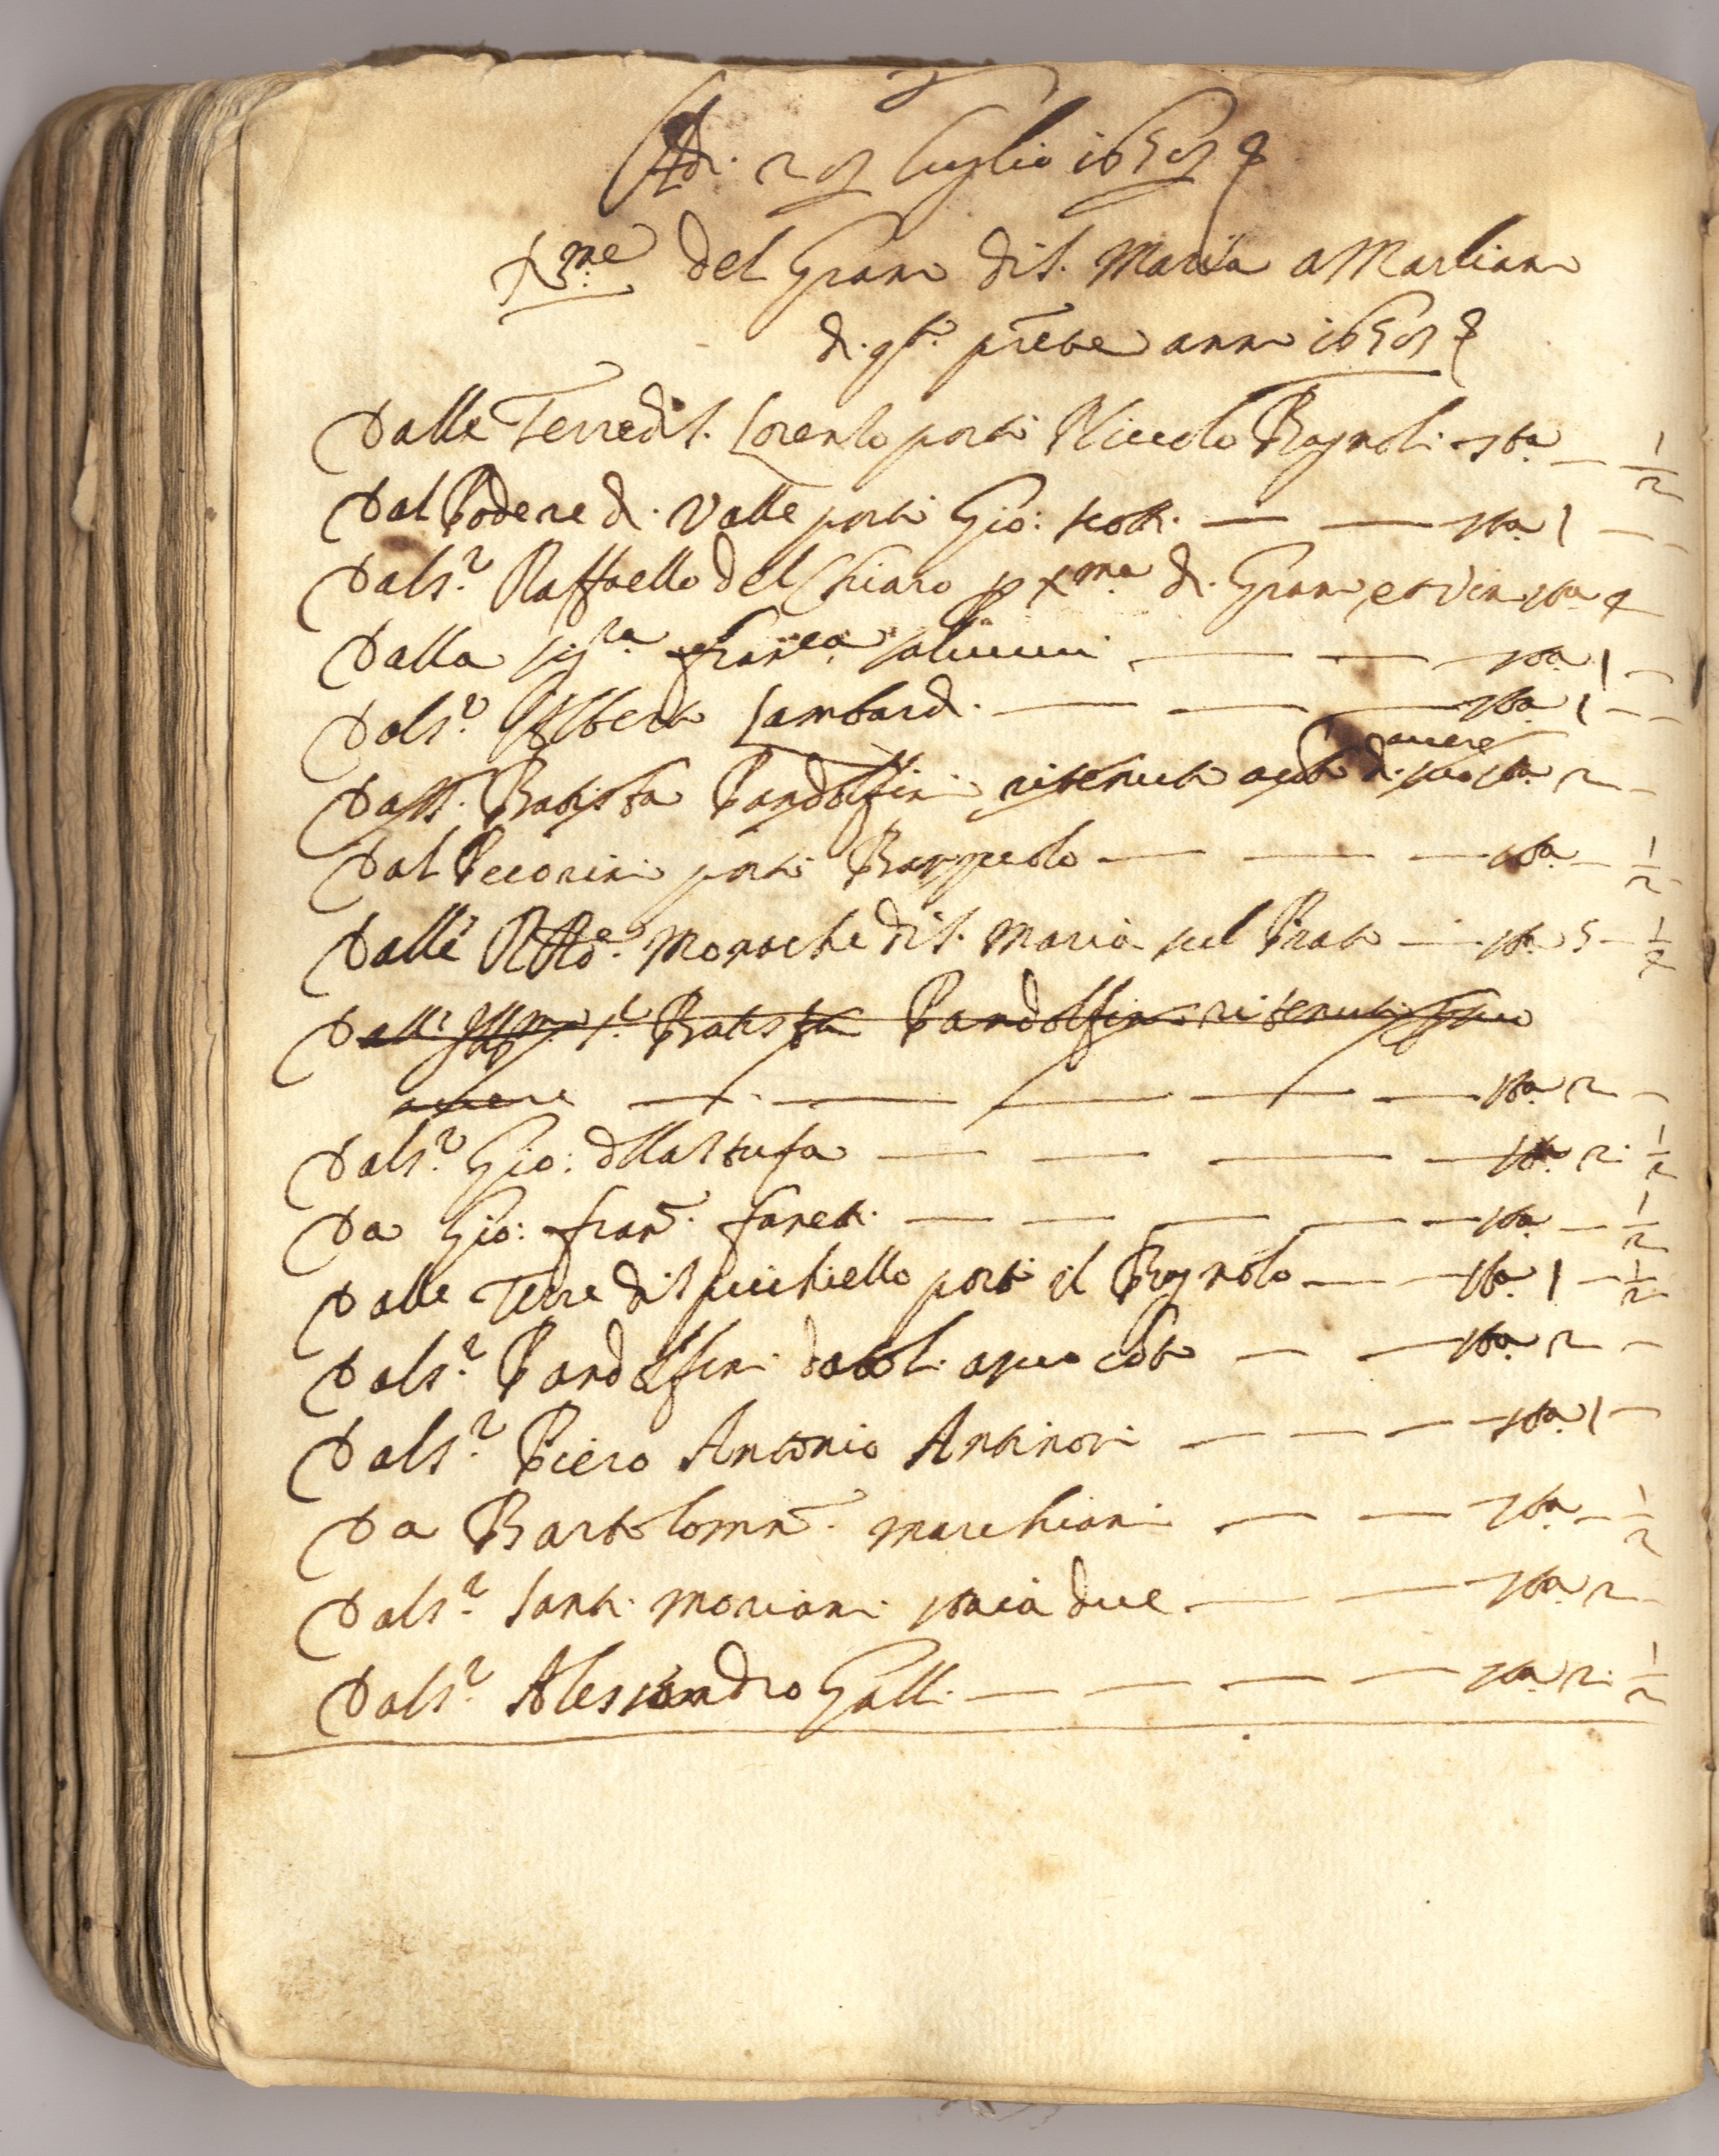 Adi. 29 luglio 1659
Xme del Grano di S. Maria a Marliano
di qto. prete anno 1659
Dalle Terre di S. Lorenzo portò Niccolo Bagnoli sta. — 1/2
Dal Podere di Valle portò Gio: scotti — — sta. 1 —
Dal Sr. Raffaello del Chiaro p Xma di Grano, et Vin sta 4
Dalla sigra. Franca. saluucci — — sta. 1 —
Dal Sr. Alberto Lambardi — — sta. 1 —
Batista Pandolfini ritenuti a di suo auere sta. 2 —
Dal Pecorini portò — — sta. — 1/2
Dalle RRde. Monache di S. Maria sul Prato — sta. 5 — 1/4
Dall Illmo. Sr. Batista Pandolfini ritenuti suo
auere — — — — sta. 2 —
Dal Sr. Gio: dlla Stufa — — — — sta. 2. 1/2
Da Gio: Fran. Faneti — — — — sta. — 1/2
Dalle Terre di Spicchiello portò il Bagnolo — — sta. 1 — 1/2
Dal Sr. Pandolfini datoli a suo cto — — sta. 2 —
Dal Sr. Piero Antonio Antinori — — — sta. 1 —
Da Bartolomo. Marchiani — — sta. — 1/2
Dal Sr. Santi Moriani staia due — — sta. 2 —
Dal Sr. Alessandro Galli — — — — sta. 2. 1/2